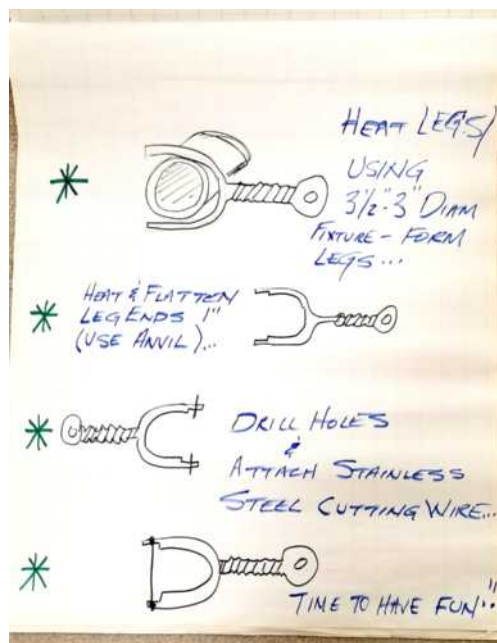 HEAT LEGS/
USING
3½"-3" DIAM
FIXTURE - FORM
LEGS...
HEAT & FLATTEN
LEG ENDS 1"
(USE ANVIL)...
DRILL HOLES
&
ATTACH STAINLESS
STEEL CUTTING WIRE...
TIME TO HAVE FUN..."